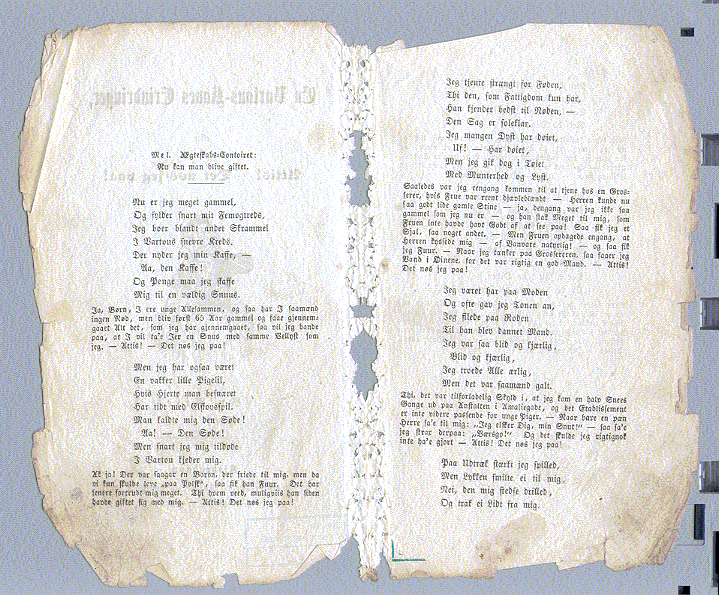 Mel. Ægteskabs-Contoiret:
Nu kan man blive giftet.
Nu er jeg meget gammel,
Og fylder snart mit Femogtreds,
Jeg boer blandt andet Skrammel
I Vartous snevre Kreds.
Der nyder jeg min Kaffe, —
Aa, den Kaffe!
Og Penge maa jeg skaffe
Mig til en vældig Snuus.
Ja, Børn, I ere unge Allesammen, og saa har I saamænd
ingen Nød, men bliv først 65 Aar gammel og faaer gjennem-
gaaet Alt det, som jeg har gjennemgaaet, saa vil jeg bande
paa, at I vil ta'e Jer en Snus med samme Vellyst som
jeg. — Attis! — Det nøs jeg paa!
Men jeg har ogsaa været
En vakker lille Pigelil,
Hvis Hjerte man besnæret
Har tidt med Elskovsspil.
Man kaldte mig den Søde!
Aa! — Den Søde!
Men snart jeg mig tilbøde
I Vartou kjeder mig.
Ak ja! Der var saagar en Baron, der friede til mig, men da
vi kun skulde leve „paa Polsk“, saa fik han Fuur. Det har
senere fortrudt mig meget. Thi hvem veed, muligviis han siden
havde giftet sig med mig. — Attis! Det nøs jeg paa!
Jeg tjente strængt for Føden,
Thi den, som Fattigdom kun har,
Han kjender bedst til Nøden, —
Den Sag er soleklar.
Jeg mangen Dyst har døiet,
Uf! — Har døiet,
Men jeg gik dog i Tøiet
Med Munterhed og Lyst.
Saaledes var jeg engang kommen til at tjene hos en Gros-
serer, hvis Frue var reent hjerteblændt — Herren kunde nu
saa godt lide gamle Stine — ja, dengang var jeg ikke saa
gammel som jeg nu er — og han stak Meget til mig, som
Fruen inte havde havt Godt af at see paa! Saa fik jeg et
Sjal, saa noget andet. — Men Fruen opdagede engang, at
Herren kyssede mig — af Vanvare naturlig! — og saa fik
jeg Fuur. — Naar jeg tænker paa Grossereren, saa faaer jeg
Vand i Øinene, for det var rigtig en god Mand. — Attis!
Det nøs jeg paa!
Jeg været har paa Moden
Og ofte gav jeg Tonen an,
Jeg filede paa Roden
Til han blev dannet Mand.
Jeg var saa blid og kjærlig,
Blid og kjærlig,
Jeg troede Alle ærlig,
Men det var saamænd galt.
Thi, det var tilforladelig Skyld i, at jeg kom en halv Snees
Gange ud paa Anstalten i Amaliegade, og det Etablissement
er inte videre passende for unge Piger. — Naar bare en pæn
Herre sa'e til mig: „Jeg elsker Dig, min Snut!“ — saa sa'e
jeg strax derpaa: „Værsgo!“ Og det skulde jeg rigtignok
inte ha'e gjort — Attis! Det nøs jeg paa!
Paa Udtræk stærkt jeg spilled,
Men Lykken smilte ei til mig,
Nei, den mig stedse drilled,
Og trak ei Lidt fra mig.